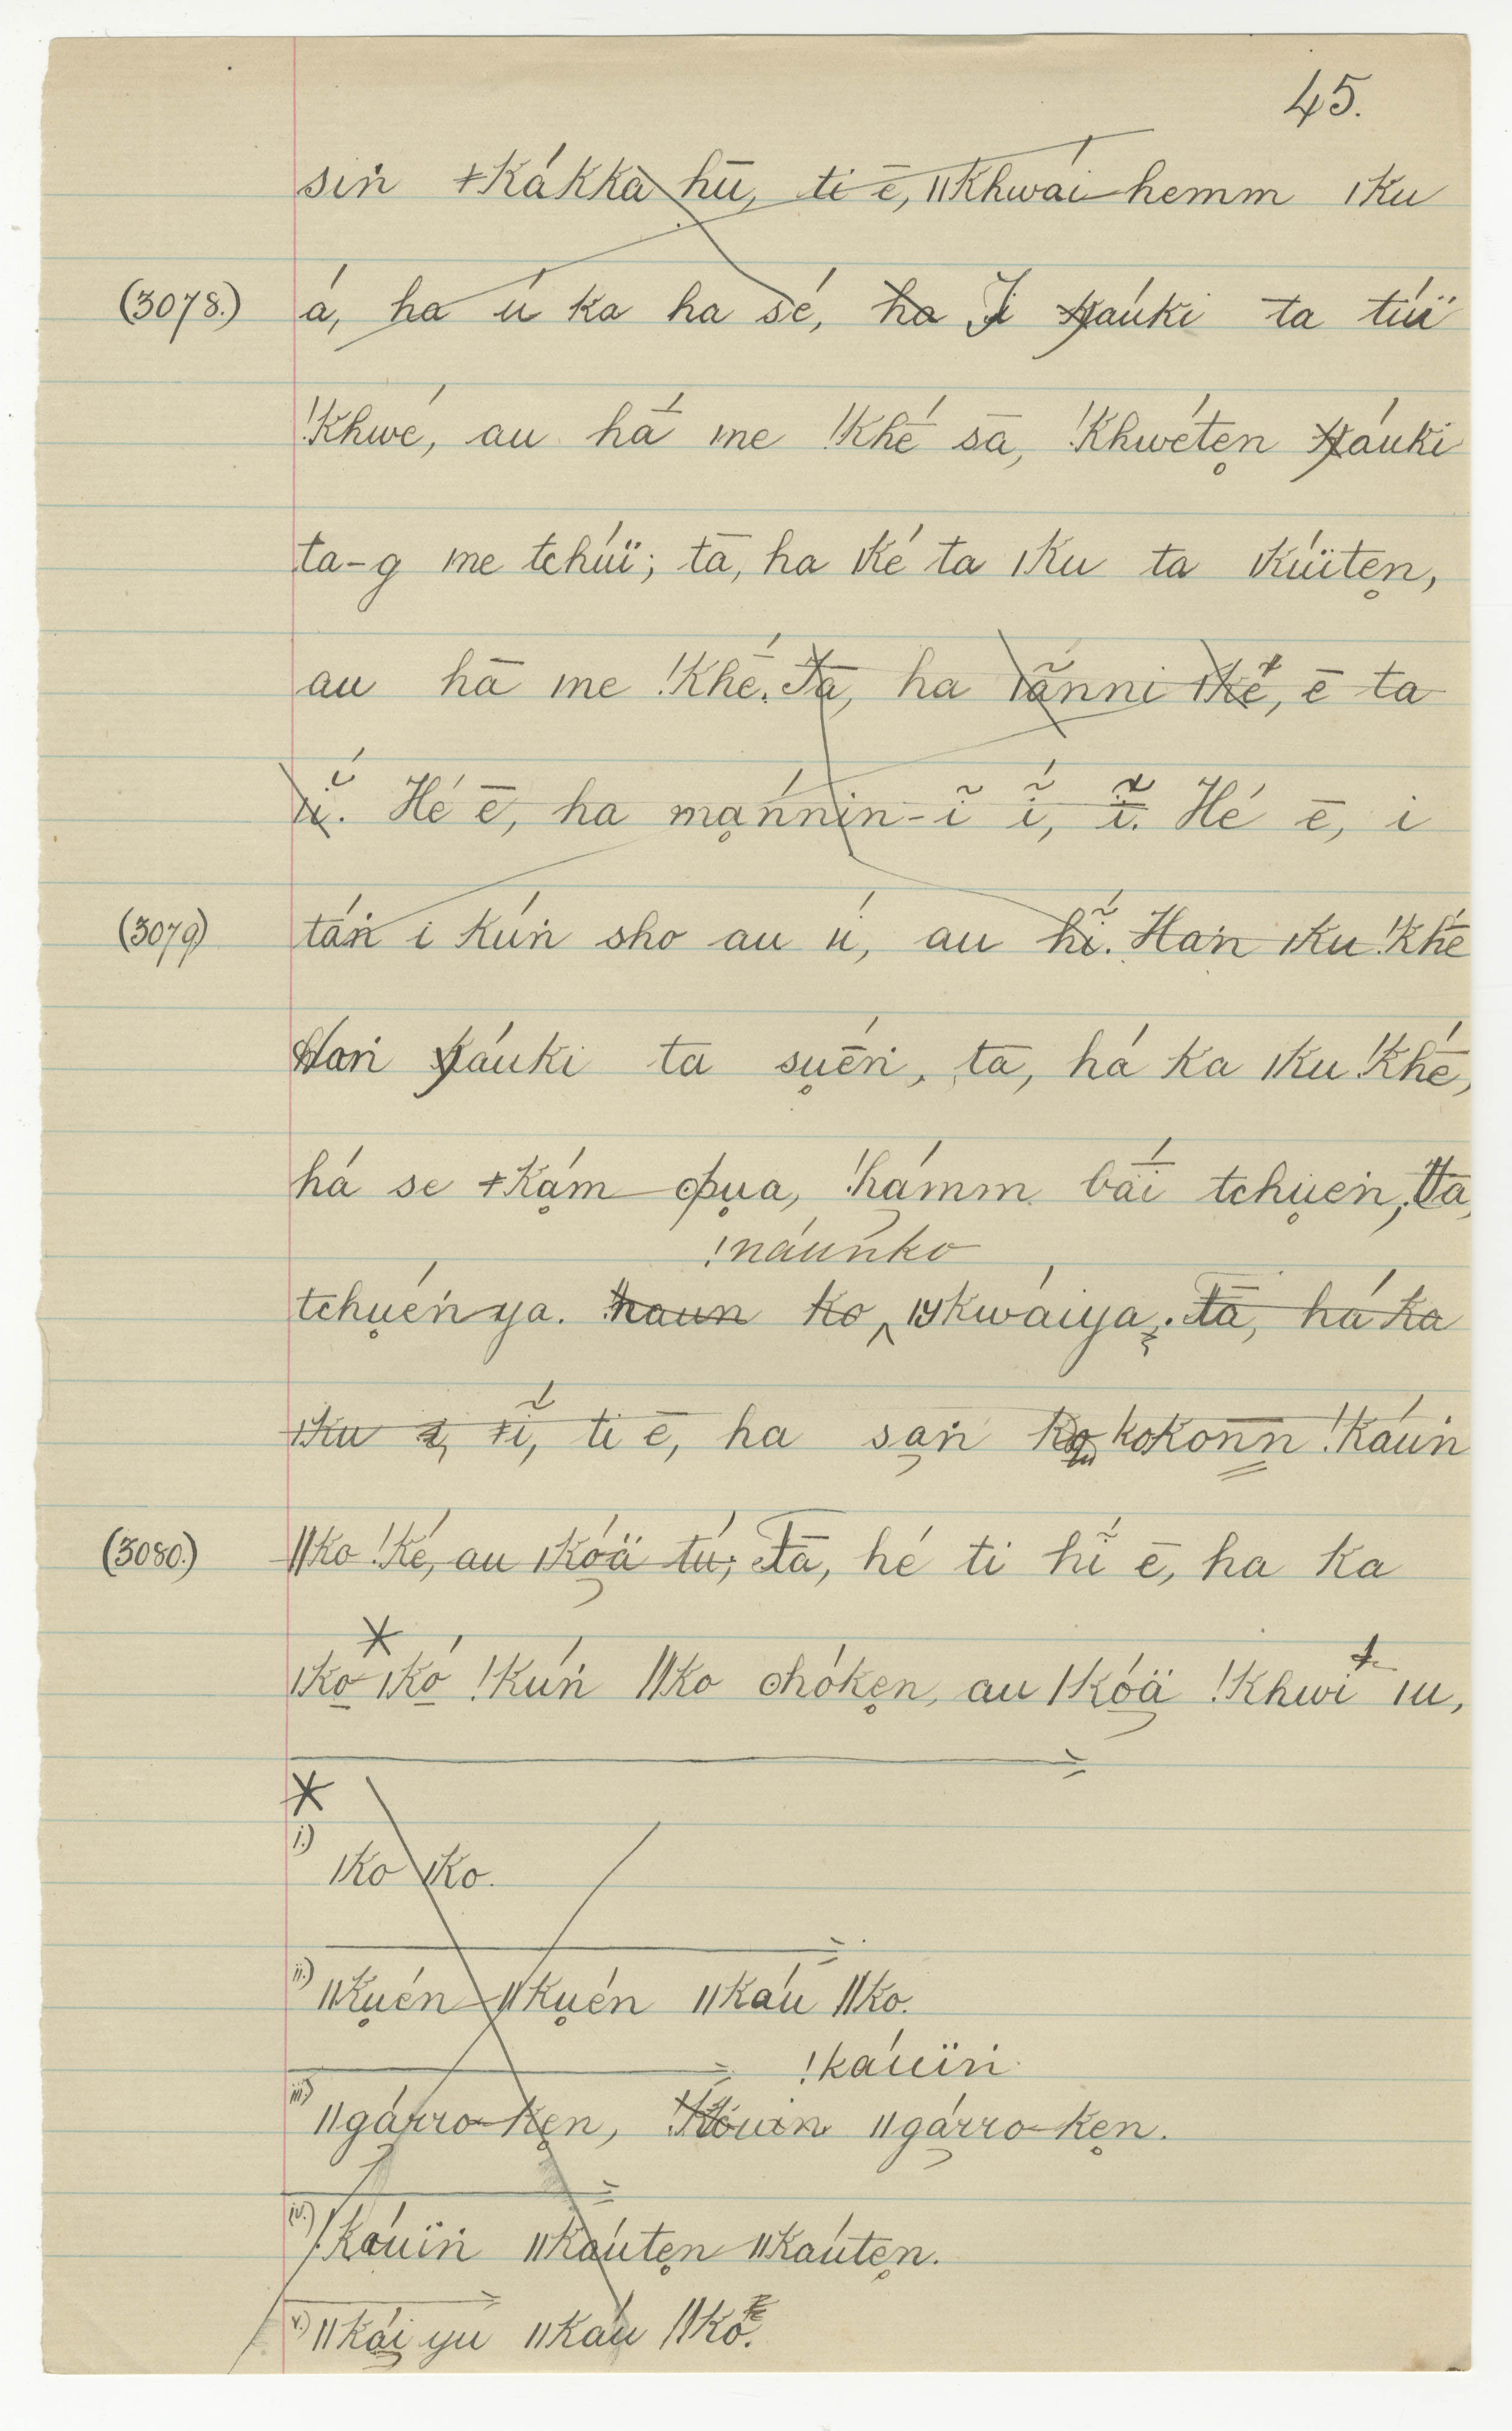 45.
sin ǂkákka hū, ti ē, ǁkhwái hemm ǀku
(3078.) á, ha ú ka ha sé, ha I ǂáuki ta túï
!khwé, au hā́ me !khé sā, !khwétẹn ǂáuki
ta-g me tchúï; tā, ha ǀké ta ǀku ta ǀkúïtẹn,
au hā me !khé. Tā, ha ǀā̃nni ǀkĕ, ē ta
ĭ. Hé ē, ha mạńnin-ĩ ĩ, ĩ. Hé ē, i
(3079) táṅ i kúṅ sho au ú, au hĩ. Haṅ ǀku !khé
Haṅ ǂáuki ta sụēṅ, tā, há ka ǀku !khé,
há se ǂkạ́m ʘpụa, !hámm bāí tchụeṅ, Tā,
!náunko
tchụéṅya. !haun ko ǀykwáiya. tā, há ka
ǀku ǂĩ, ti ē, ha saṅ kokonn !káuṅ
(3080.) ǁko !ké, au ǀkóä tú; Tā, hé ti hĩ ē, ha ka
*
ǀko ǀkó !kúṅ ǁko ʘhókẹn, au ǀkóä !khwi ǀu,
*
i.) ǀko ǀko.
ii.) ǁkụén ǁkụén ǁkáu ǁko.
!káuïṅ
iii.) ǁgárro-kẹn, !kóuïn ǁgárro-kẹn.
iv.) !káuïṅ ǁkáutẹn ǁkáutẹn.
v.) ǁkái yu ǁkáu ǁkó.